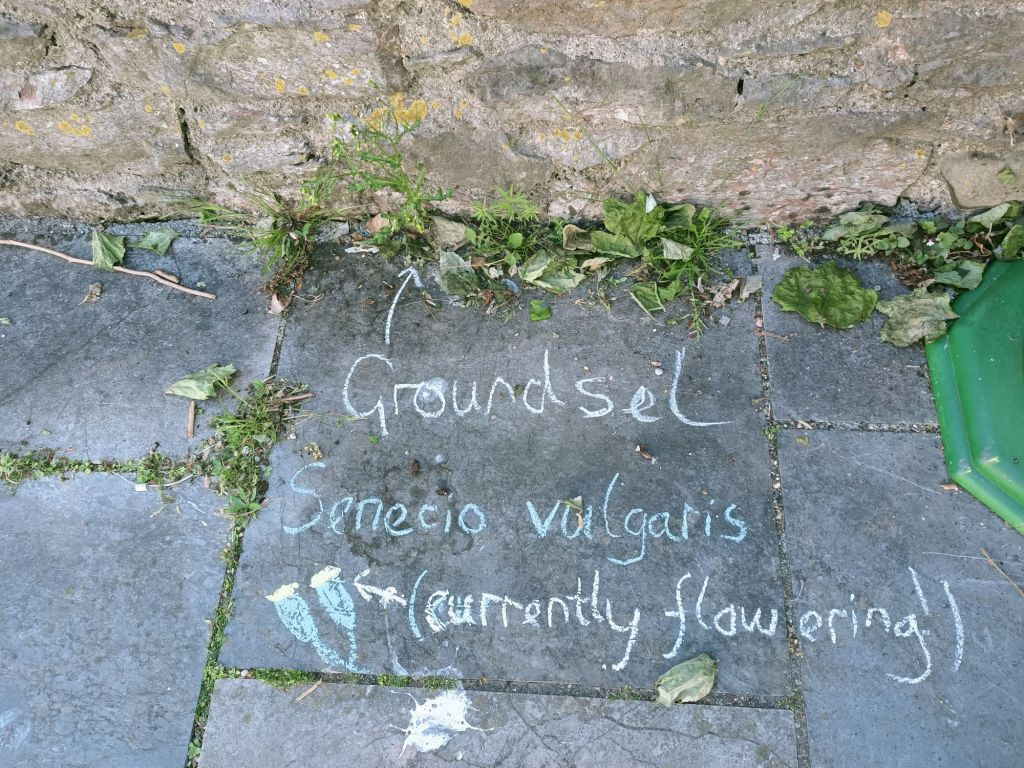 Groundsel
Senecio vulgaris
(currently flowering!)